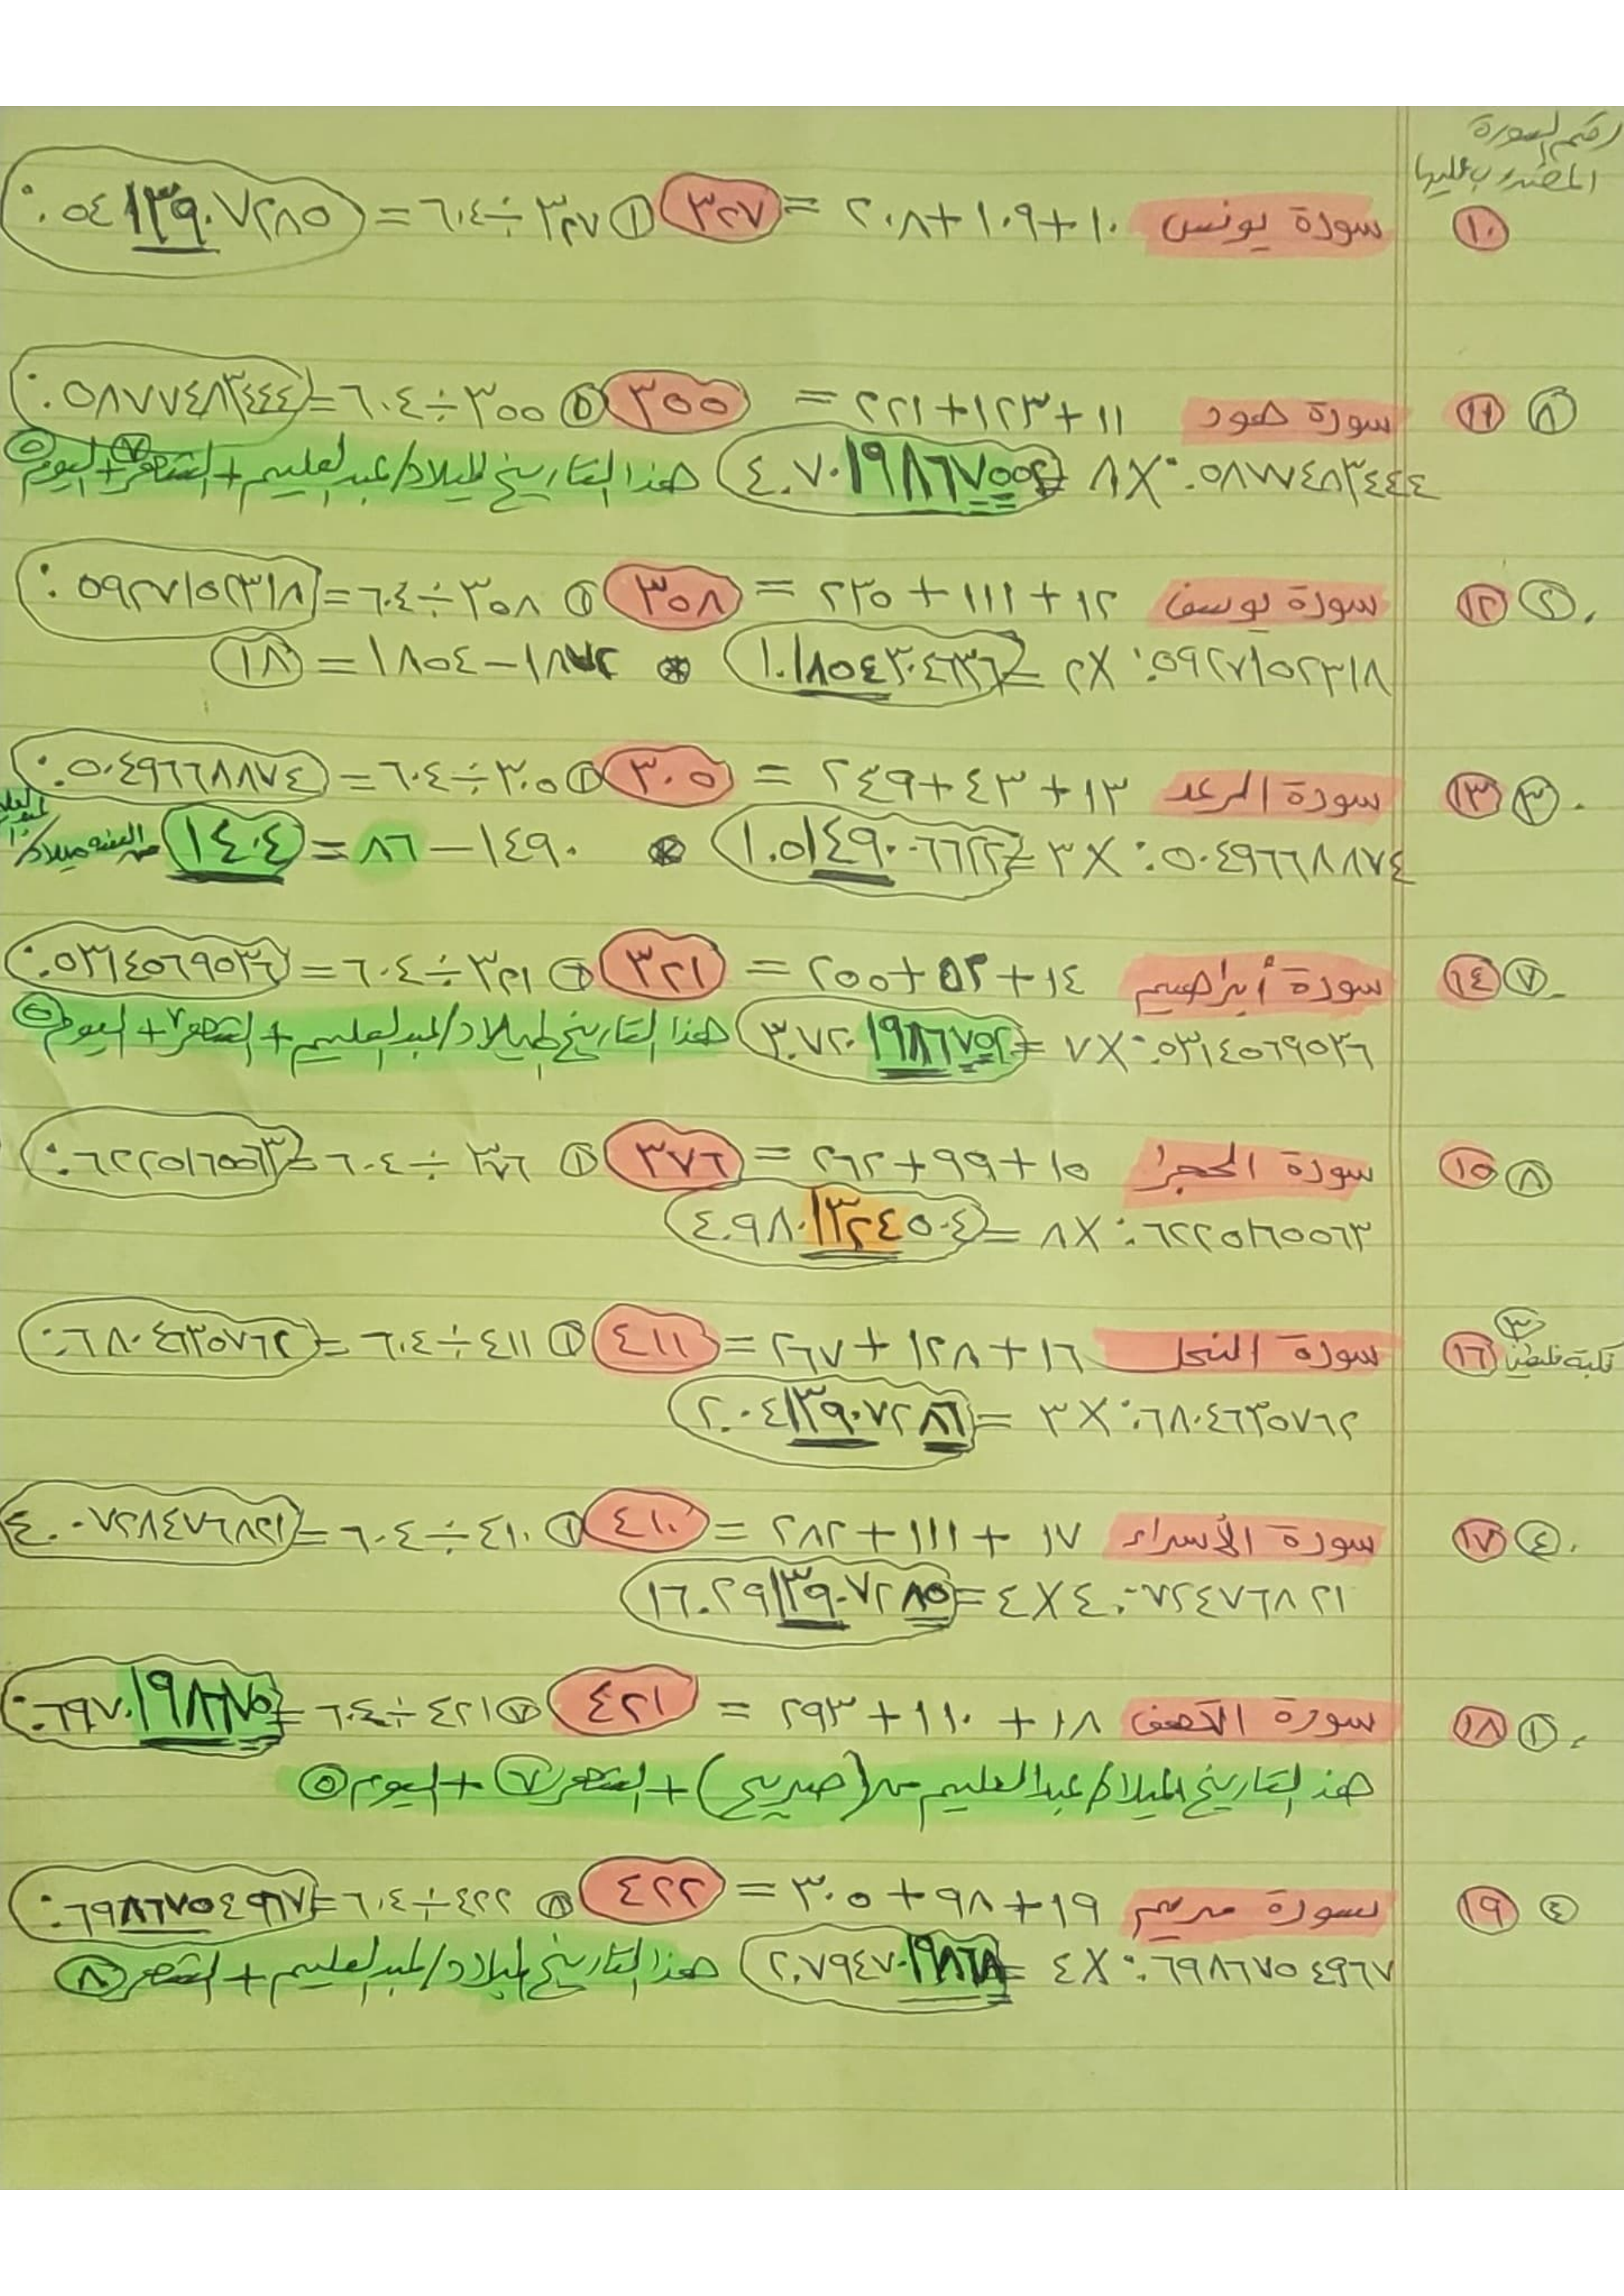 رقم السورة
المضروب عليها
١٠ سورة يونس ١٠+١٠٩+٢٠٨ = ٣٢٧ ① ٣٢٧÷٦٠٤ = ٠.٥٤١٣٩٠٧٢٨٥
⑧ ⑪ سورة هود ١١+١٢٣+٢٢١ = ٣٥٥ ① ٣٥٥÷٦٠٤ = ٠.٥٨٧٧٤٨٣٤٤٤
٠.٥٨٧٧٤٨٣٤٤٤ X ٨ = ٤.٧٠١٩٨٦٧٥٥٢ هذا التاريخ لميلاد/عبدالعليم + الشهر ⑦ + اليوم ⑤
② ⑫ سورة يوسف ١٢+١١١+٢٣٥ = ٣٥٨ ① ٣٥٨÷٦٠٤ = ٠.٥٩٢٧١٥٢٣١٨
٠.٥٩٢٧١٥٢٣١٨ X ٢ = ١.١٨٥٤٣٠٤٦٣٦ * ١٨٧٢-١٨٥٤ = ١٨
③ ⑬ سورة الرعد ١٣+٤٣+٢٤٩ = ٣٠٥ ① ٣٠٥÷٦٠٤ = ٠.٥٠٤٩٦٦٨٨٧٤
٠.٥٠٤٩٦٦٨٨٧٤ X ٣ = ١.٥١٤٩٠٠٦٦٢٢ * ١٤٩٠-٨٦ = ١٤٠٤
⑦ ⑭ سورة أبراهيم ١٤+٥٢+٢٥٥ = ٣٢١ ① ٣٢١÷٦٠٤ = ٠.٥٣١٤٥٦٩٥٣٦
٠.٥٣١٤٥٦٩٥٣٦ X ٧ = ٣.٧٢٠١٩٨٦٧٥٢ هذا التاريخ لميلاد/عبدالعليم + الشهر ٧ + اليوم ⑤
⑧ ⑮ سورة الحجر ١٥+٩٩+٢٦٢ = ٣٧٦ ① ٣٧٦÷٦٠٤ = ٠.٦٢٢٥١٦٥٥٦٣
٠.٦٢٢٥١٦٥٥٦٣ X ٨ = ٤.٩٨٠١٣٢٤٥٠٤
③ نكبة فلسطين ⑯ سورة النحل ١٦+١٢٨+٢٦٧ = ٤١١ ① ٤١١÷٦٠٤ = ٠.٦٨٠٤٦٣٥٧٦٢
٠.٦٨٠٤٦٣٥٧٦٢ X ٣ = ٢.٠٤١٣٩٠٧٢٨٦
④ ⑰ سورة الأسراء ١٧+١١١+٢٨٢ = ٤١٠ ① ٤١٠÷٦٠٤ = ٤.٠٠٧٢٨٤٧٦٨٢١
٢١٨٦٧٤٢٧٠٠.٤ X ٤ = ١٦.٠٢٩١٣٩٠٧٢٨٥
① ⑱ سورة الكهف ١٨+١١٠+٢٩٣ = ٤٢١ ⑦ ٤٢١÷٦٠٤ = ٠.٦٩٧٠١٩٨٦٧٥
هذا التاريخ لميلاد/عبدالعليم (صريح) + الشهر ⑦ + اليوم ⑤
④ ⑲ سورة مريم ١٩+٩٨+٣٠٥ = ٤٢٢ ⑧ ٤٢٢÷٦٠٤ = ٠.٦٩٨٦٧٥٤٩٦٧
٠.٦٩٨٦٧٥٤٩٦٧ X ٤ = ٢.٧٩٤٧٠١٩٨٦٨ هذا التاريخ لميلاد/عبدالعليم + الشهر ⑧